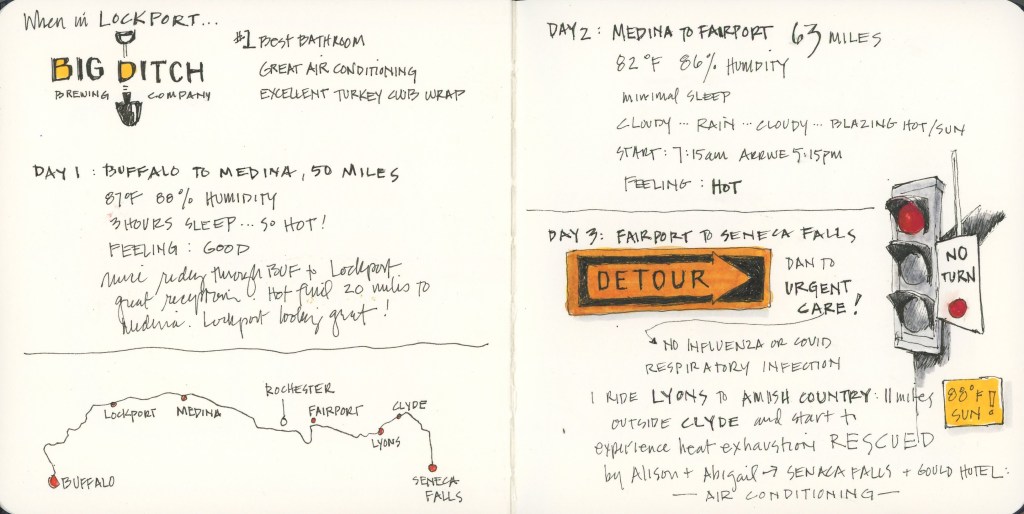 When in LOCKPORT...
BIG DITCH
BREWING COMPANY
#1 BEST BATHROOM
GREAT AIR CONDITIONING
EXCELLENT TURKEY CLUB WRAP
DAY 1 : BUFFALO TO MEDINA, 50 MILES
87°F 88% HUMIDITY
3 HOURS SLEEP... SO HOT!
FEELING : GOOD
Nice riding through BUF to Lockport
great reception. Hot final 20 miles to
Medina. Lockport looking great!
BUFFALO
LOCKPORT
MEDINA
ROCHESTER
FAIRPORT
LYONS
CLYDE
SENECA
FALLS
DAY 2 : MEDINA TO FAIRPORT 63 MILES
82°F 86% HUMIDITY
minimal SLEEP
CLOUDY ... RAIN ... CLOUDY ... BLAZING HOT/SUN
START : 7:15am ARRIVE 5:15pm
FEELING : HOT
DAY 3 : FAIRPORT TO SENECA FALLS
DETOUR
DAN TO
URGENT
CARE!
NO
TURN
NO INFLUENZA OR COVID
RESPIRATORY INFECTION
I RIDE LYONS TO AMISH COUNTRY : 11 miles
OUTSIDE CLYDE and start to
experience heat exhaustion RESCUED
by Alison + Abigail → SENACA FALLS + GOULD HOTEL :
— AIR CONDITIONING —
88°F!
SUN!